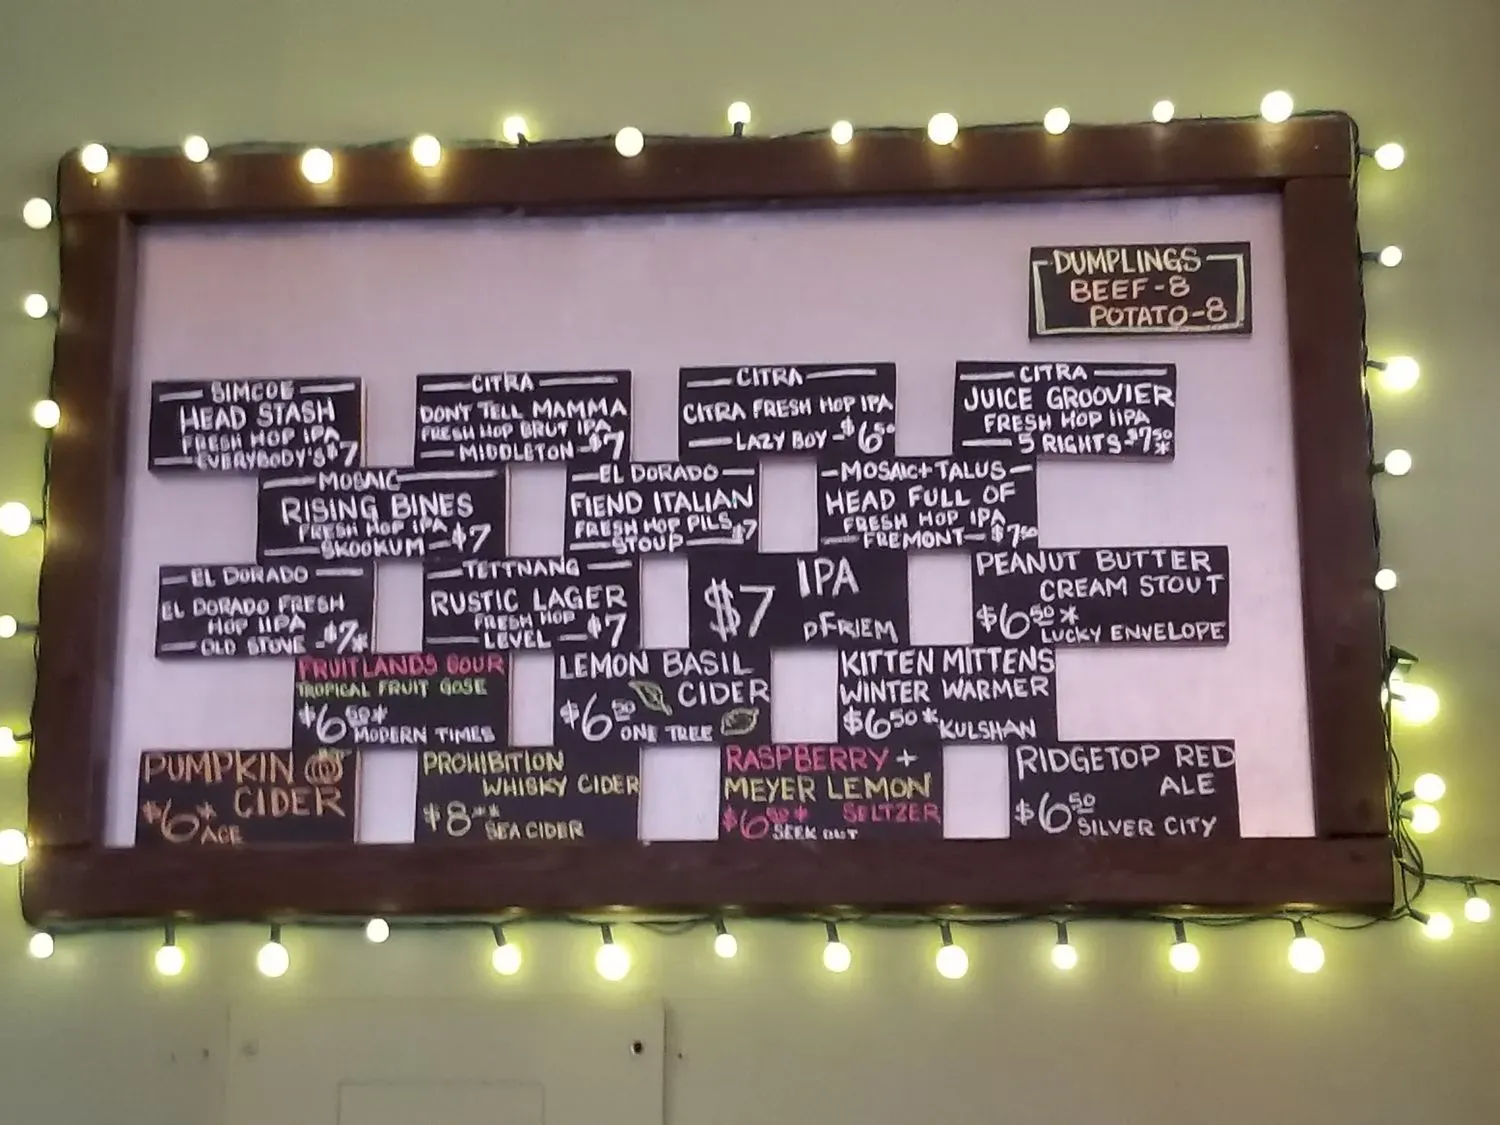 DUMPLINGS
BEEF-8
POTATO-8
SIMCOE
HEAD STASH
FRESH HOP IPA
EVERYBODY'S $7
CITRA
DON'T TELL MAMMA
FRESH HOP BRUT IPA
MIDDLETON - $7
CITRA
CITRA FRESH HOP IPA
LAZY BOY - $6⁵⁰
CITRA
JUICE GROOVIER
FRESH HOP IIPA
5 RIGHTS $7⁵⁰*
MOSAIC
RISING BINES
FRESH HOP IPA
SKOOKUM - $7
EL DORADO
FIEND ITALIAN
FRESH HOP PILS $7
STOUP
-MOSAIC + TALUS-
HEAD FULL OF
FRESH HOP IPA
FREMONT - $7⁵⁰
EL DORADO
EL DORADO FRESH
HOP IIPA
OLD STOVE - $7*
TETTNANG
RUSTIC LAGER
FRESH HOP
LEVEL - $7
IPA
$7
PFRIEM
PEANUT BUTTER
CREAM STOUT
$6⁵⁰*
LUCKY ENVELOPE
FRUITLANDS SOUR
TROPICAL FRUIT GOSE
$6⁵⁰*
MODERN TIMES
LEMON BASIL
CIDER
$6⁵⁰
ONE TREE
KITTEN MITTENS
WINTER WARMER
$6⁵⁰* KULSHAN
PUMPKIN
CIDER
$6*
ACE
PROHIBITION
WHISKY CIDER
$8**
SEA CIDER
RASPBERRY +
MEYER LEMON
$6⁵⁰* SELTZER
SEEK OUT
RIDGETOP RED
ALE
$6⁵⁰
SILVER CITY